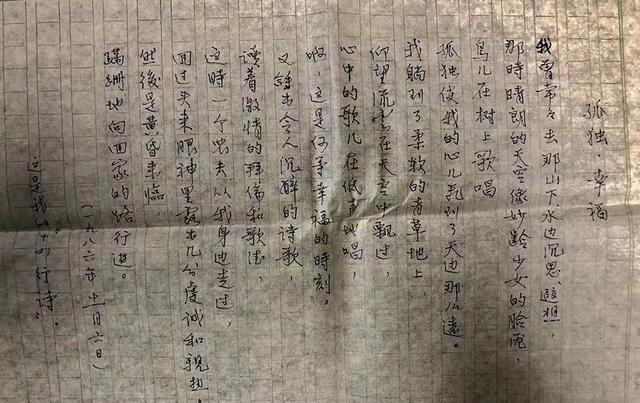 孤独·幸福
我曾常々去那山下、水边沉思、遐想,
那時晴朗的天空像妙齡少女的脸庞,
鸟儿在树上歌唱
孤独使我的心儿飛到了天边那么遠。
我躺到了柔软的青草地上,
仰望流云在天空中飘过,
心中的歌儿在低声地唱,
啊,这是何等幸福的時刻。
又讀出令人沉醉的诗歌
讀着激情的拜倫和歌德,
这時一个农夫从我身边走过,
回过头来眼神里露出几分虔诚和親热。
然後是黄昏来臨,
蹒跚地向回家的路行进。
(一九八六年十一月六日)
这是我的十四行诗。